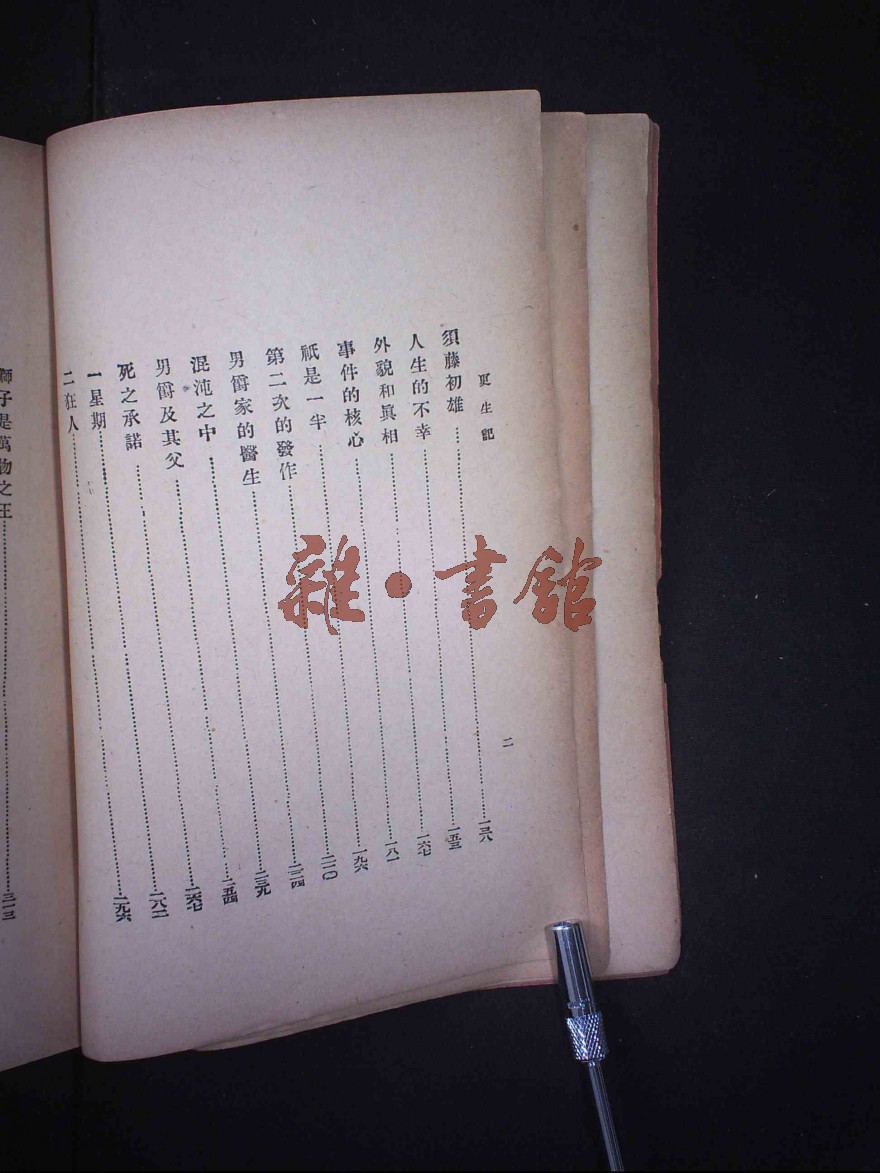 更生記
二
須藤初雄……一三八
人生的不幸……一五三
外貌和眞相……一六七
事件的核心……一八一
祇是一半……一九六
第二次的發作……二一〇
男爵家的醫生……二二四
混沌之中……二三九
男爵及其父……二五四
死之承諾……二六七
一星期……二八二
二狂人……二九六
獅子是萬物之王……三一三
雜·書館